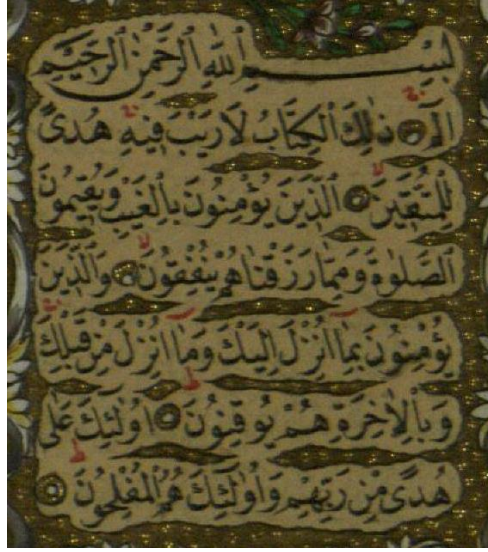 بِسْمِ ٱللَّهِ ٱلرَّحْمٰنِ ٱلرَّحِيمِ
الٓمٓ ۝ ذٰلِكَ الْكِتَابُ لَا رَيْبَ فِيهِ هُدًى
لِلْمُتَّقِينَ ۝ الَّذِينَ يُؤْمِنُونَ بِالْغَيْبِ وَيُقِيمُونَ
الصَّلٰوةَ وَمِمَّا رَزَقْنَاهُمْ يُنْفِقُونَ ۝ وَالَّذِينَ
يُؤْمِنُونَ بِمَا أُنْزِلَ إِلَيْكَ وَمَا أُنْزِلَ مِنْ قَبْلِكَ
وَبِالْاٰخِرَةِ هُمْ يُوقِنُونَ ۝ اُولٰئِكَ عَلٰى
هُدًى مِنْ رَبِّهِمْ وَاُولٰئِكَ هُمُ الْمُفْلِحُونَ ۝